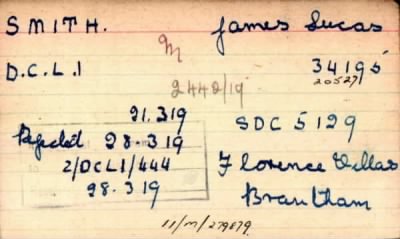 SMITH. James Lucas
M
D.C.L.I 34195
20527
2442/19
21.3.19
SDC 5129
Rejected 28.3.19
2/DCLI/444
Florence Villas
28.3.19
Brantham
11/M/279879